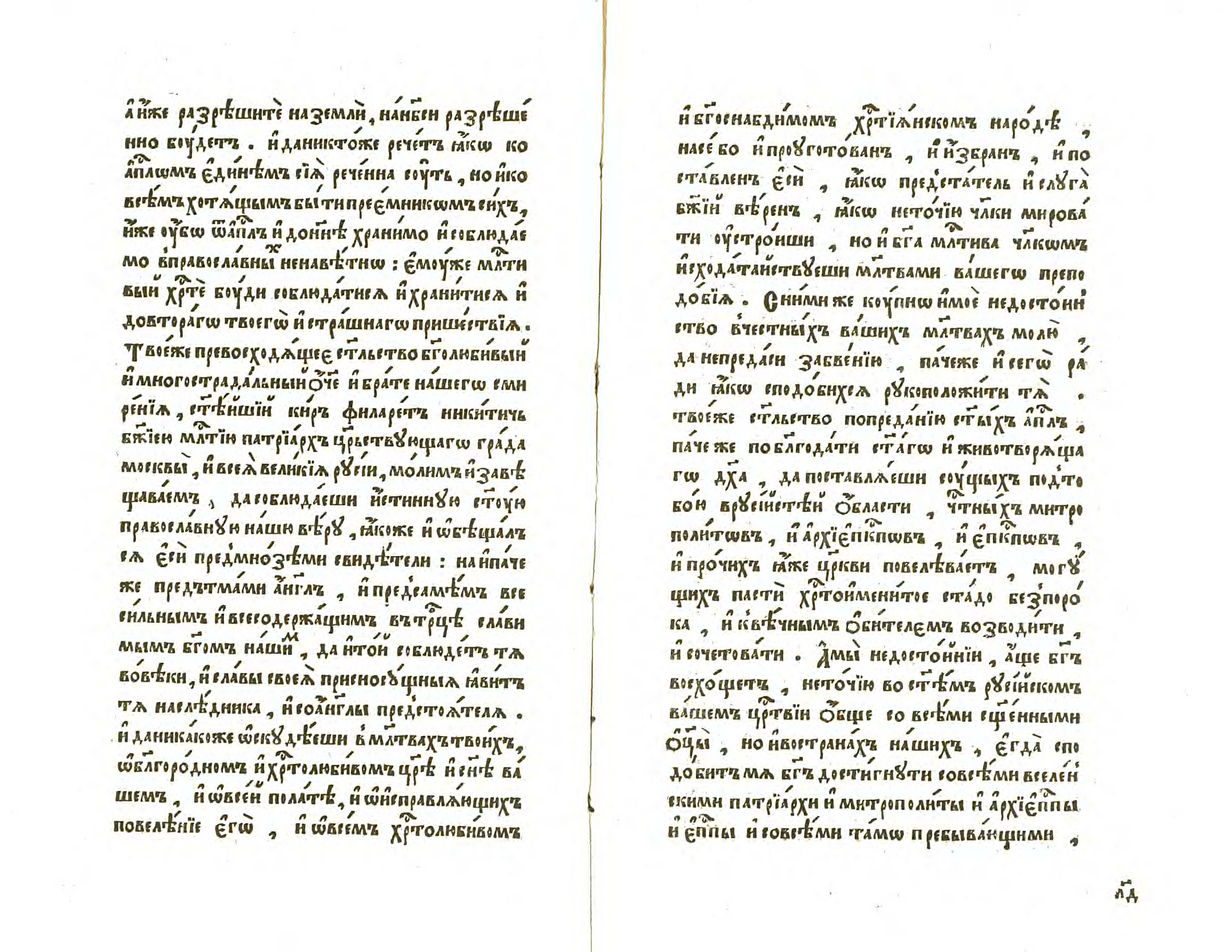 а҆ и҆́же разрѣшитѐ на землѝ, на нб҃си разрѣше́
нно бꙋ́детъ . и҆ да никто́же рече́тъ ꙗ҆́кѡ ко
а҆пⷭ҇лѡмъ є҆ди́нѣмъ сїѧ̀ рече́нна сꙋ́ть , но и҆ ко
всѣ́мъ хотѧ́щымъ бы́ти прее́мникѡмъ си́хъ,
и҆́же ᲂу҆́бѡ ѿ а҆пⷭ҇лъ и҆ до нн҃ѣ храни́мо и҆ соблюда́е
мо в̾ правосла́вныⷯ ненавѣ́тнѡ : є҆мꙋ́же млⷭ҇ти
вый хрⷭ҇тѐ бꙋ́ди соблюда́тисѧ и҆ храни́тисѧ и҆
до втора́гѡ твоегѡ̀ и҆ стра́шнагѡ прише́ствїѧ .
Твое́же превосходѧ́щее ст҃льство бг҃олюби́вый
и҆ многострада́льный ѻ҆́ч҃е и҆ бра́те на́шегѡ сми
ре́нїѧ , ст҃ѣ́йшїй ки́ръ филаре́тъ ники́тичь
бж҃їею млⷭ҇тїю патрїа́рхъ црⷭ҇твꙋющагѡ гра́да
москвы̀ , и҆ всеѧ̀ вели́кїѧ рꙋсі́и, мо́лимъ и҆ завѣ
щава́емъ , да соблюда́еши и҆́стиннꙋю ст҃ꙋ́ю
правосла́внꙋю на́шю вѣ́рꙋ , ꙗ҆́коже и҆ ѡ҆бѣща́лъ
сѧ є҆сѝ пред̾ мно́зѣми свидѣ́тели : на и҆па́че
же пред̾ тма́ми а҆́нгл҃ъ , и҆ пред̾ самѣ́мъ все
си́льнымъ и҆ вседержа́щимъ въ трⷪ҇цѣ сла́ви
мымъ бг҃омъ на́шиⷨ , да и҆ то́й соблюде́тъ тѧ
во вѣ́ки, и҆ сла́вы своеѧ̀ присносꙋ́щныѧ ꙗ҆ви́тъ
тѧ наслѣ́дника , и҆ со а҆́нгл҃ы предстоѧ́телѧ .
и҆ да ника́коже ѡ҆скꙋдѣ́еши в̾ мл҃твахъ твои́хъ,
ѡ҆ бл҃горо́дномъ и҆ хрⷭ҇толюби́вомъ цр҃ѣ̀ и҆ сн҃ѣ ва́
шемъ , и҆ ѡ҆ всей пола́тѣ, и҆ ѡ҆ и҆справлѧ́ющихъ
повелѣ́нїе є҆гѡ̀ , и҆ ѡ҆ все́мъ хрⷭ҇толюби́вомъ
и҆ бг҃оснабди́момъ хрⷭ҇тїѧ́нскомъ наро́дѣ ,
на се́ бо и҆ проꙋгото́ванъ , и҆ и҆збра́нъ , и҆ по
ста́вленъ є҆сѝ , ꙗ҆́кѡ предста́тель и҆ слꙋга̀
бж҃їй вѣ́ренъ , ꙗ҆́кѡ не то́чїю чл҃ки мирова́
ти ᲂу҆стро́иши , но и҆ бг҃а млⷭ҇тива чл҃кѡмъ
и҆схода́тайствꙋеши мл҃твами ва́шегѡ препо
до́бїѧ . С ни́ми же кꙋ́пнѡ и҆ моѐ недосто́ин̾
ство в̾ честны́хъ ва́шихъ мл҃твахъ молю̀ ,
да не преда́си забве́нїю , па́чеже и҆ сегѡ̀ ра́
ди ꙗ҆́кѡ сподо́бихсѧ рꙋкоположи́ти тѧ̀ .
твое́же ст҃льство по преда́нїю ст҃ы́хъ а҆пⷭ҇лъ ,
па́че же по бл҃года́ти ст҃а́гѡ и҆ животворѧ́ща
гѡ дх҃а , да поставлѧ́еши сꙋ́щыхъ под̾ то
бо́ю в рꙋсі́йстѣй ѻ҆́бласти , чⷭ҇тны́хъ митро
поли́тѡвъ , и҆ а҆рхїепⷭ҇кпѡвъ , и҆ є҆пⷭ҇кпѡвъ ,
и҆ про́чихъ ꙗ҆́же цр҃кви повелѣва́етъ , могꙋ́
щихъ пастѝ хрⷭ҇тоимени́тое ста́до без̾поро́
ка , и҆ к̾ вѣ́чнымъ ѻ҆би́телемъ возводи́ти ,
и҆ сочетова́ти . А҆ мы̀ недосто́йнїи , а҆́ще бг҃ъ
восхо́щетъ , не то́чїю во ст҃ѣ́мъ рꙋсі́йскомъ
ва́шемъ црⷭ҇твїи ѻ҆́бще со все́ми сщ҃е́нными
ѻ҆ц҃ы̀ , но и҆ во страна́хъ на́шихъ , є҆гда̀ спо
до́битъ мѧ бг҃ъ дости́гнꙋти со все́ми вселе́н̾
скими патрїа́рхи и҆ митрополи́ты и҆ а҆рхїеп҃пы
и҆ є҆п҃пы и҆ со все́ми та́мѡ пребыва́ющими ,
л҃д